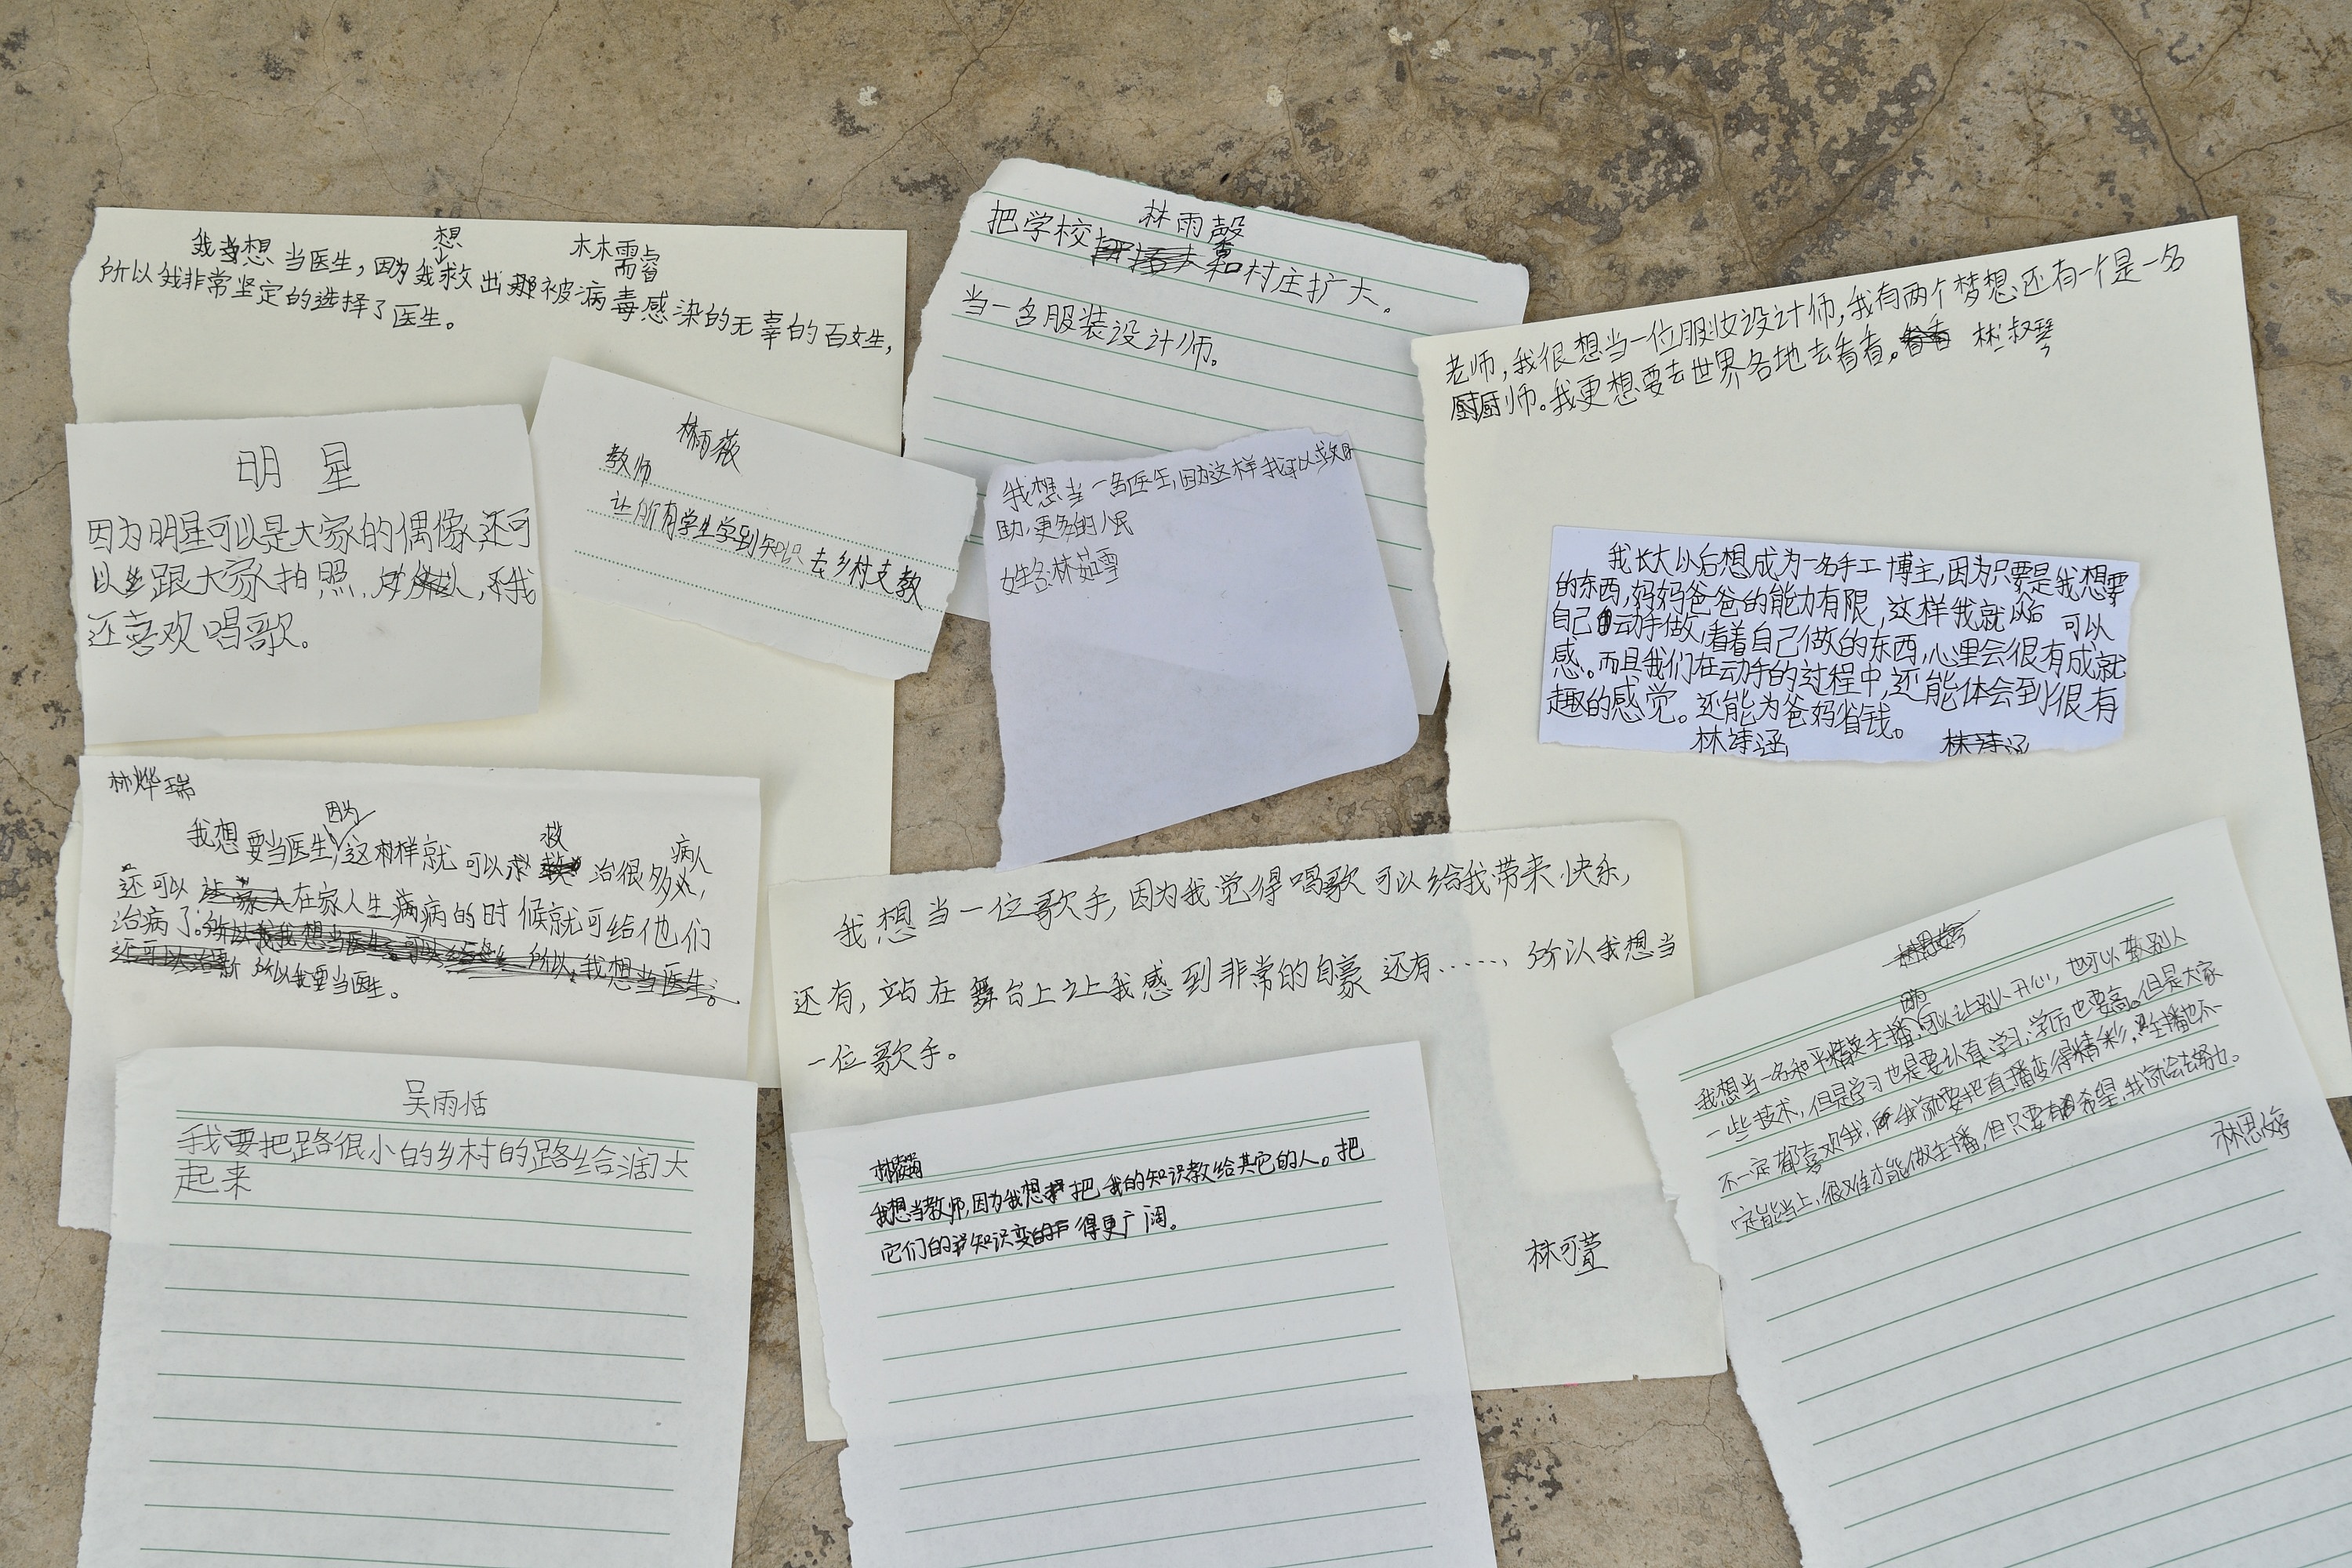 林霈睿
我想当医生，因为我想救出那被病毒感染的无辜的百姓，
所以我非常坚定的选择了医生。
林雨馨
把学校和村庄扩大。
当一名服装设计师。
老师，我很想当一位服妆设计师，我有两个梦想还有一个是一名
厨师。我更想要去世界各地去看看。 林淑琴
明星
因为明星可以是大家的偶像还可
以跟大家拍照，
还喜欢唱歌。
林雨薇
教师
让所有学生学到知识 去乡村支教
我想当一名医生，因为这样我可以救
助，更多的人民
姓名林茹雪
我长大以后想成为一名手工博主，因为只要是我想要
的东西，妈妈爸爸的能力有限，这样我就以后可以
自己动手做，看着自己做的东西，心里会很有成就
感。而且我们在动手的过程中，还能体会到很有
趣的感觉。还能为爸妈省钱。
林诗涵
林烨瑞
我想要当医生，因为这样就可以救治很多病人，
还可以在家人生病的时候就可给他们
治病了。
所以我要当医生。
我想当一位歌手，因为我觉得唱歌可以给我带来快乐，
还有，站在舞台上让我感到非常的自豪还有……，所以我想当
一位歌手。
林可萱
吴雨恬
我要把路很小的乡村的路给润大
起来
我想当教师，因为我想把我的知识教给其它的人。把
它们的知识变得更广阔。
我想当一名和平精英主播，因为可以让别人开心，也可以教别人
一些技术，但是学习也是要认真学习，学历也要高。但是大家
不一定都喜欢我，所以我就要把直播变得精彩，主播也不一
定能当上，很难才能做主播，但只要有希望，我就会去努力。
林思婷